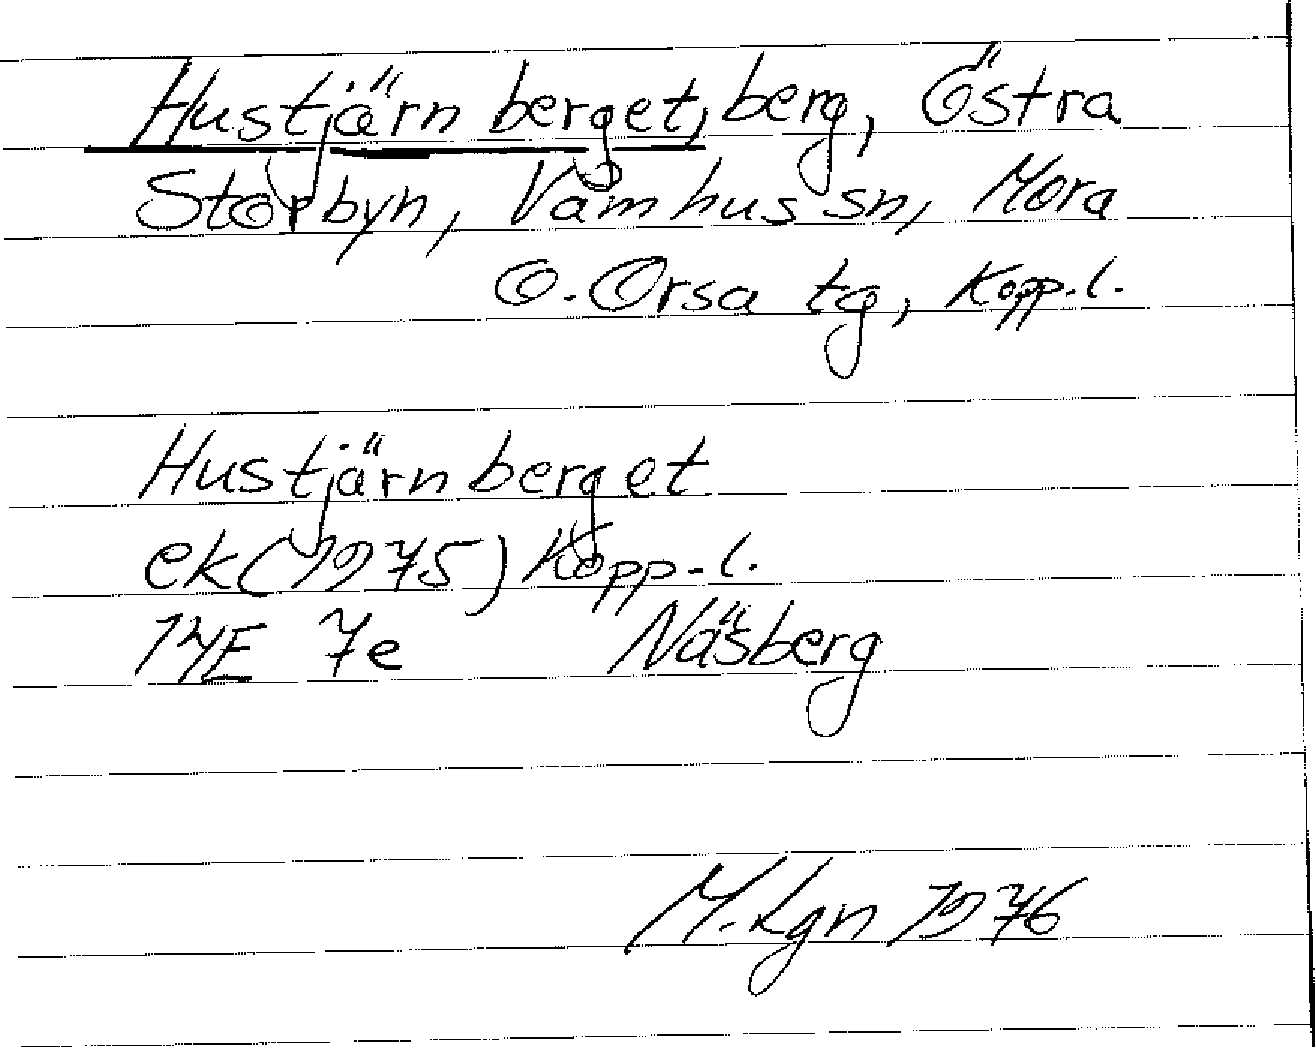 Hustjärnberget, berg, Östra
Storbyn, Våmhus sn, Mora
o. Orsa tg, Kopp. l.
Hustjärnberget
ek (1975) Kopp-l.
14E 7e Näsberg
M. Lgn 1976